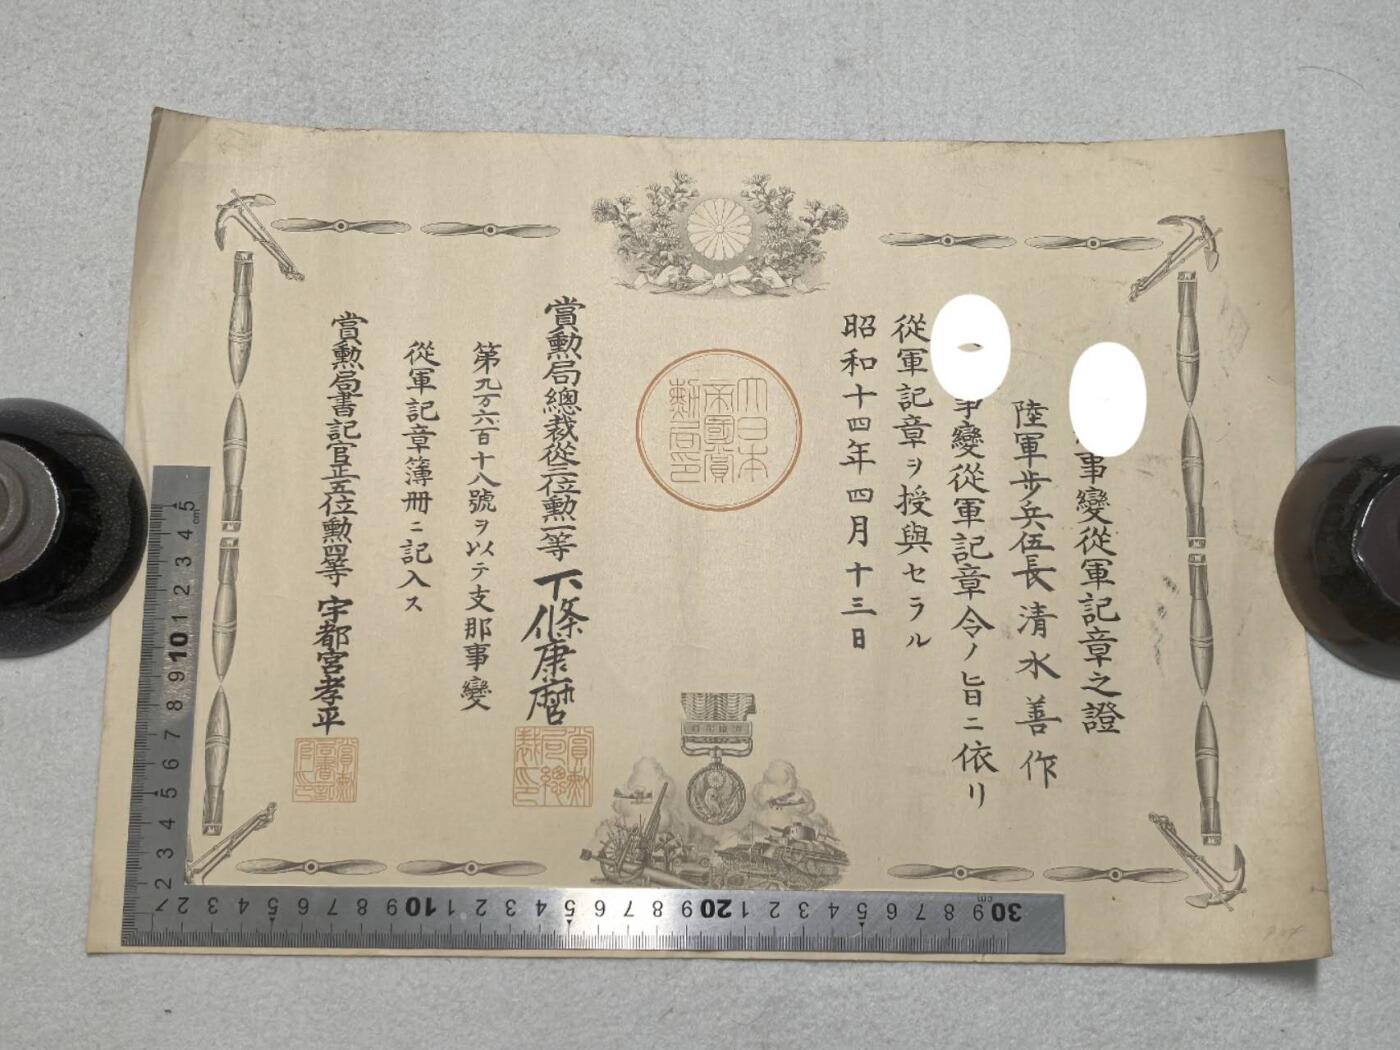 事變從軍記章之證
陸軍步兵伍長清水善作
事變從軍記章令ノ旨ニ依リ
從軍記章ヲ授與セラル
昭和十四年四月十三日
大日本
帝國賞
勲局印
賞勲局總裁從三位勲一等下條康麿
賞勲
局總
裁印
第九万六百十八號ヲ以テ支那事變
從軍記章簿冊ニ記入ス
賞勲局書記官正五位勲四等宇都宮孝平
賞勲
局書記
官印
2 3 4 5 6 7 8 9 10 1 2 3 4 5 cm
2 3 4 5 6 7 8 9 10 1 2 3 4 5 6 7 8 9 20 1 2 3 4 5 6 7 8 9 30 cm